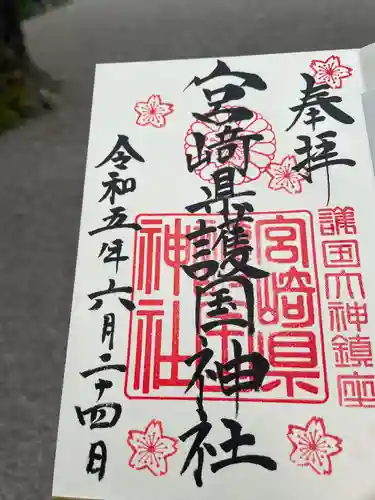 奉拝
宮崎県護国神社
令和五年六月二十四日
護国大神鎮座
宮崎県
護国
神社